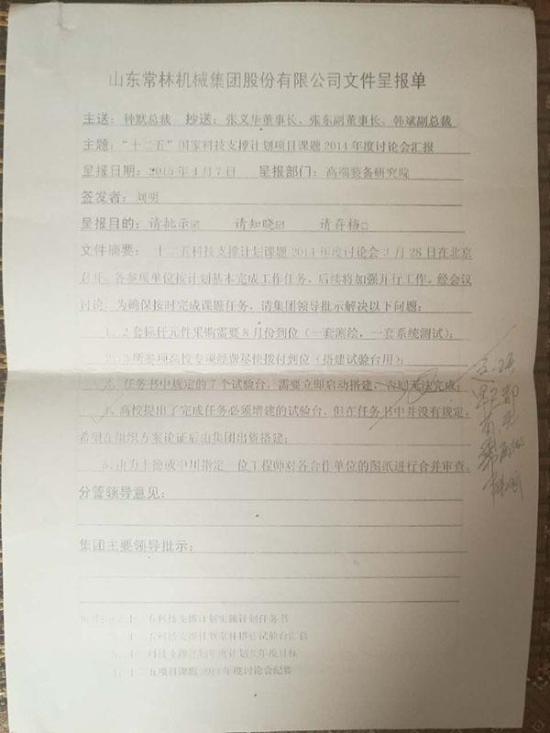 山东常林机械集团股份有限公司文件呈报单
主送：种默总裁 抄送：张义华董事长、张东副董事长、韩斌副总裁
主题：“十二五”国家科技支撑计划项目课题2014年度讨论会汇报
呈报日期：2015年4月7日 呈报部门：高端装备研究院
签发者：刘明
呈报目的：请批示☑ 请知晓☑ 请存档□
文件摘要：十二五科技支撑计划课题2014年度讨论会3月28日在北京
召开，各参项单位按计划基本完成工作任务，后续将加强并行工作，经会议
讨论，为确保按时完成课题任务，请集团领导批示解决以下问题：
1、2套标杆元件采购需要8月份到位（一套测绘，一套系统测试）；
所参项高校专项经费尽快拨付到位（搭建试验台用）；
任务书中规定的7个试验台，需要立即启动搭建，否则无法完成；
高校提出了完成任务必须增建的试验台，但在任务书中并没有规定，
希望在组织方案论证后由集团出资搭建；
指定一位工程师对各合作单位的图纸进行合并审查。
分管领导意见：
集团主要领导批示：
十二五科技支撑计划实施计划任务书
科技支撑计划年度计划及年度目标
十二五项目课题2014年度讨论会纪要